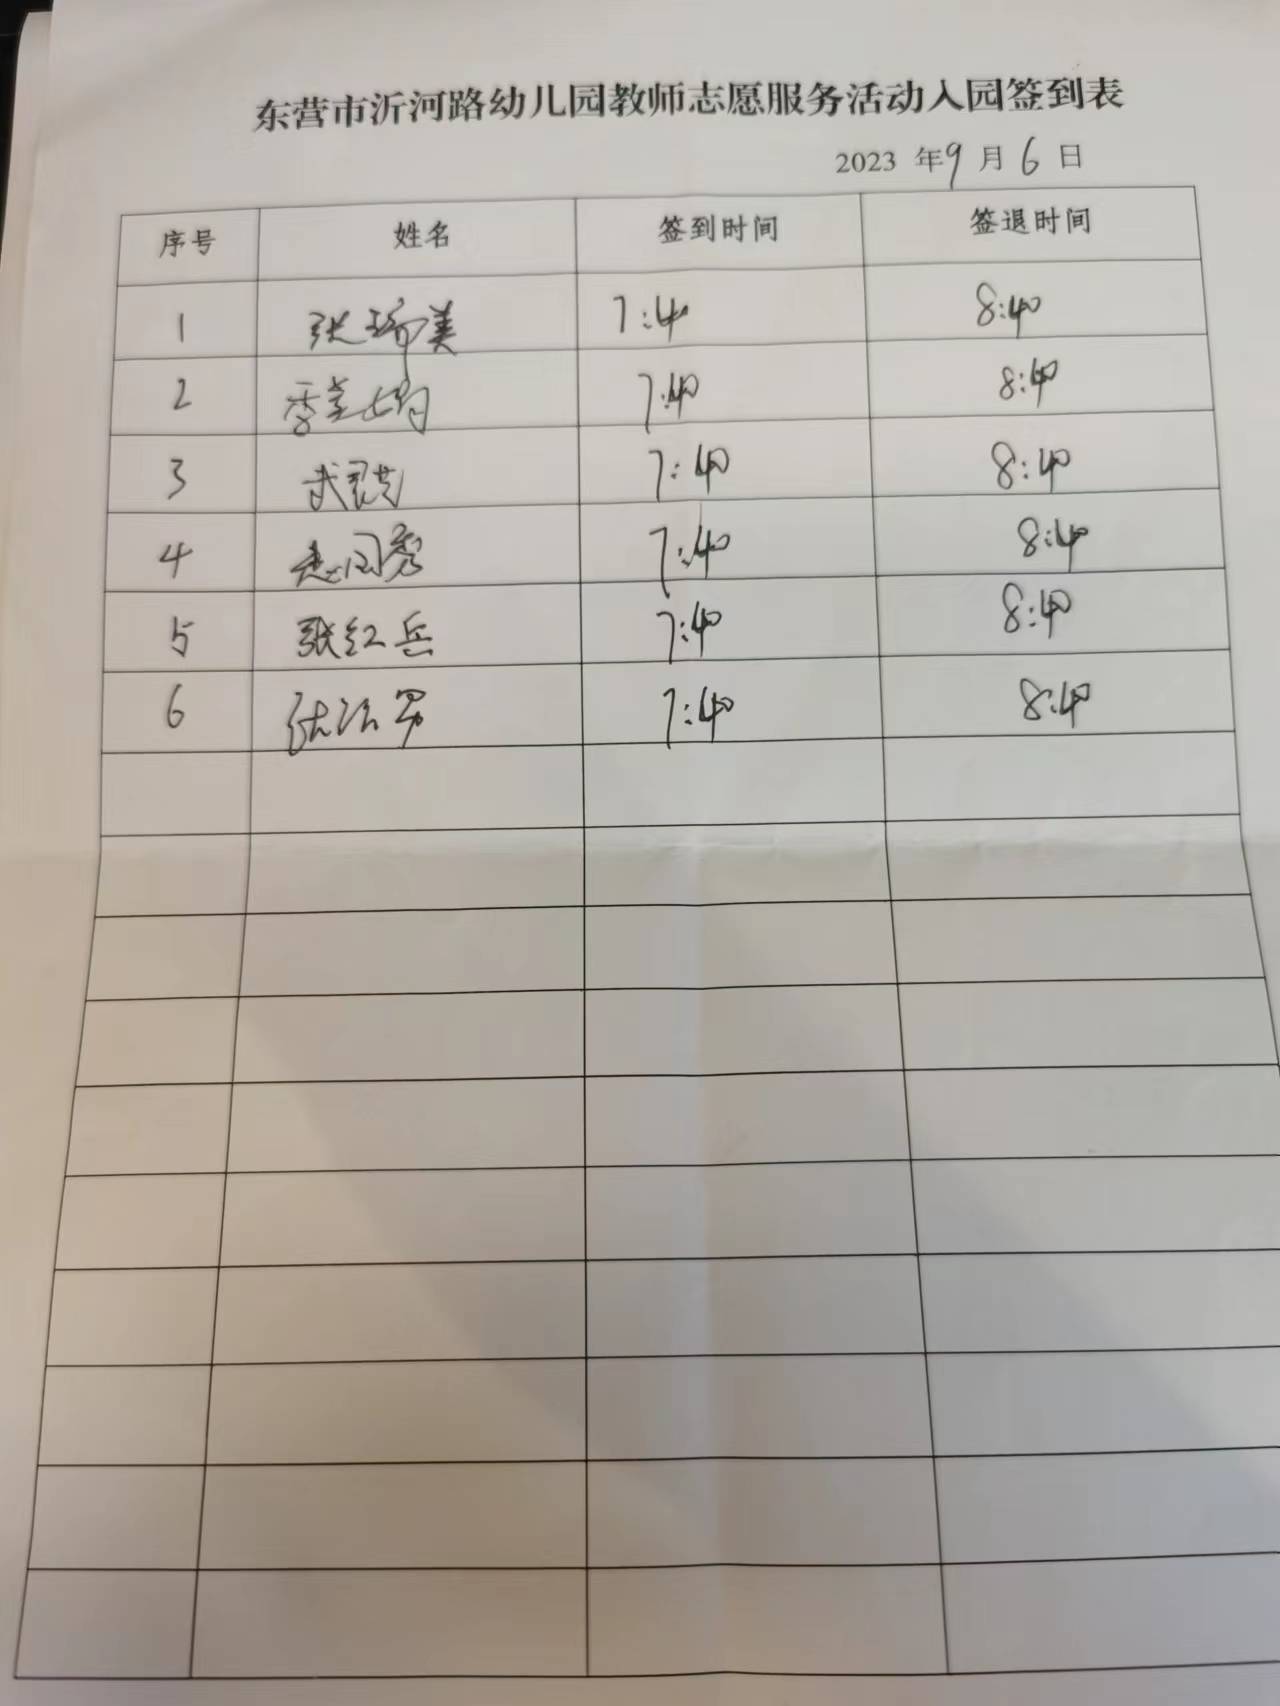 东营市沂河路幼儿园教师志愿服务活动入园签到表
2023 年9月6日
序号 姓名 签到时间 签退时间
1 张琦美 7:40 8:40
2 7:40 8:40
3 7:40 8:40
4 7:40 8:40
5 张红兵 7:40 8:40
6 7:40 8:40